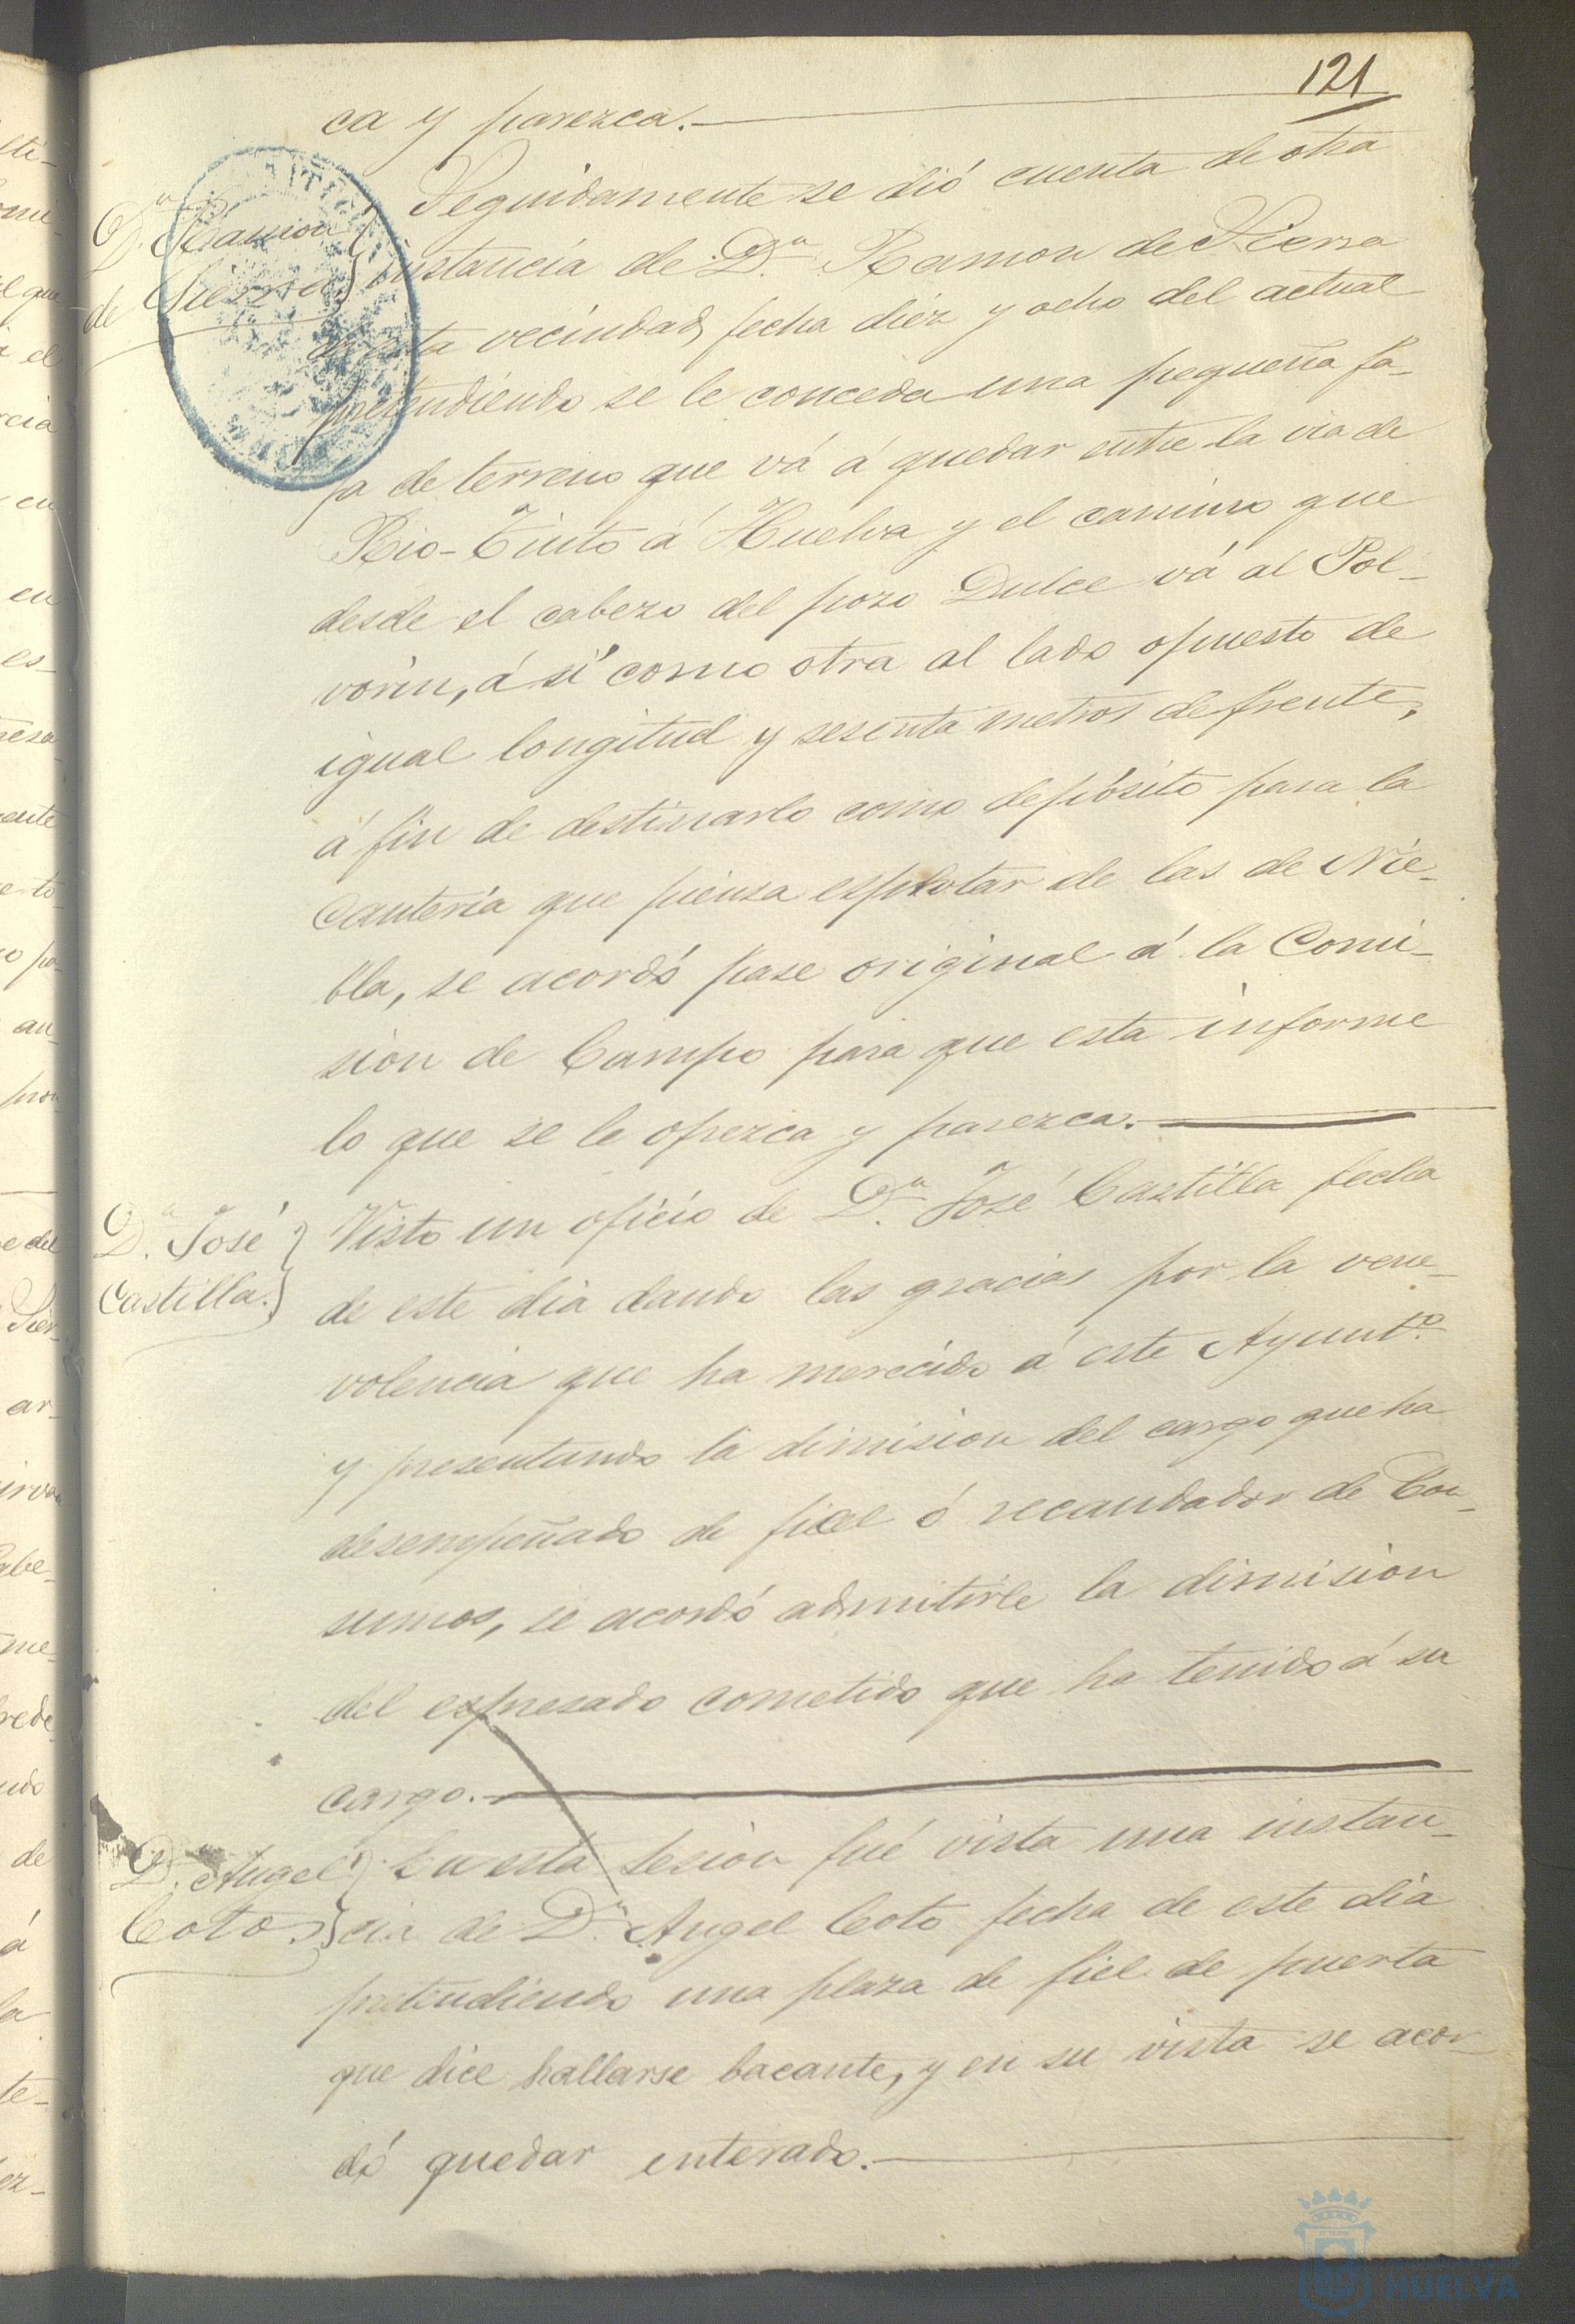 121
ca y parezca.
D.n Ramon
de Sierra
Seguidamente se dió cuenta de otra
instancia de D.n Ramon de Sierra
de esta vecindad, fecha diez y ocho del actual
pretendiendo se le conceda una pequeña fa-
ja de terreno que vá á quedar entre la via de
Rio-Tinto á Huelva y el camino que
desde el cabezo del pozo Dulce vá al Pol-
vorin, á sí como otra al lado opuesto de
igual longitud y sesenta metros de frente,
á fin de destinarlo como depósito para la
Cantería que piensa esplotar de las de Nie-
bla, se acordó pase original á la Comi-
sion de Campo para que esta informe
lo que se le ofrezca y parezca.
D.n José
Castilla.
Visto un oficio de D.n José Castilla fecha
de este dia dando las gracias por la vene-
volencia que ha merecido á este Ayunt.o
y presentando la dimision del cargo que ha
desempeñado de fiel ó recaudador de Con-
sumos, se acordó admitirle la dimision
del espresado cometido que ha tenido á su
cargo.
D.n Angel
Coto.
En esta sesion fué vista una instan-
cia de D.n Angel Coto fecha de este dia
pretendiendo una plaza de fiel de puerta
que dice hallarse bacante, y en su vista se acor-
dó quedar enterado.
HUELVA